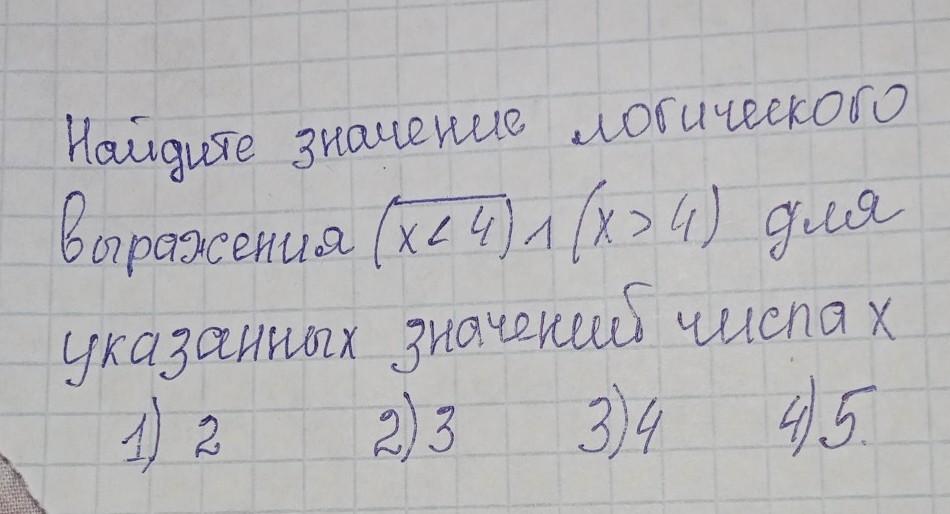 Найдите значение логического
выражения (x̅ ̅<̅ ̅4̅) ∧ (x > 4) для
указанных значений числа х
1) 2 2) 3 3) 4 4) 5.